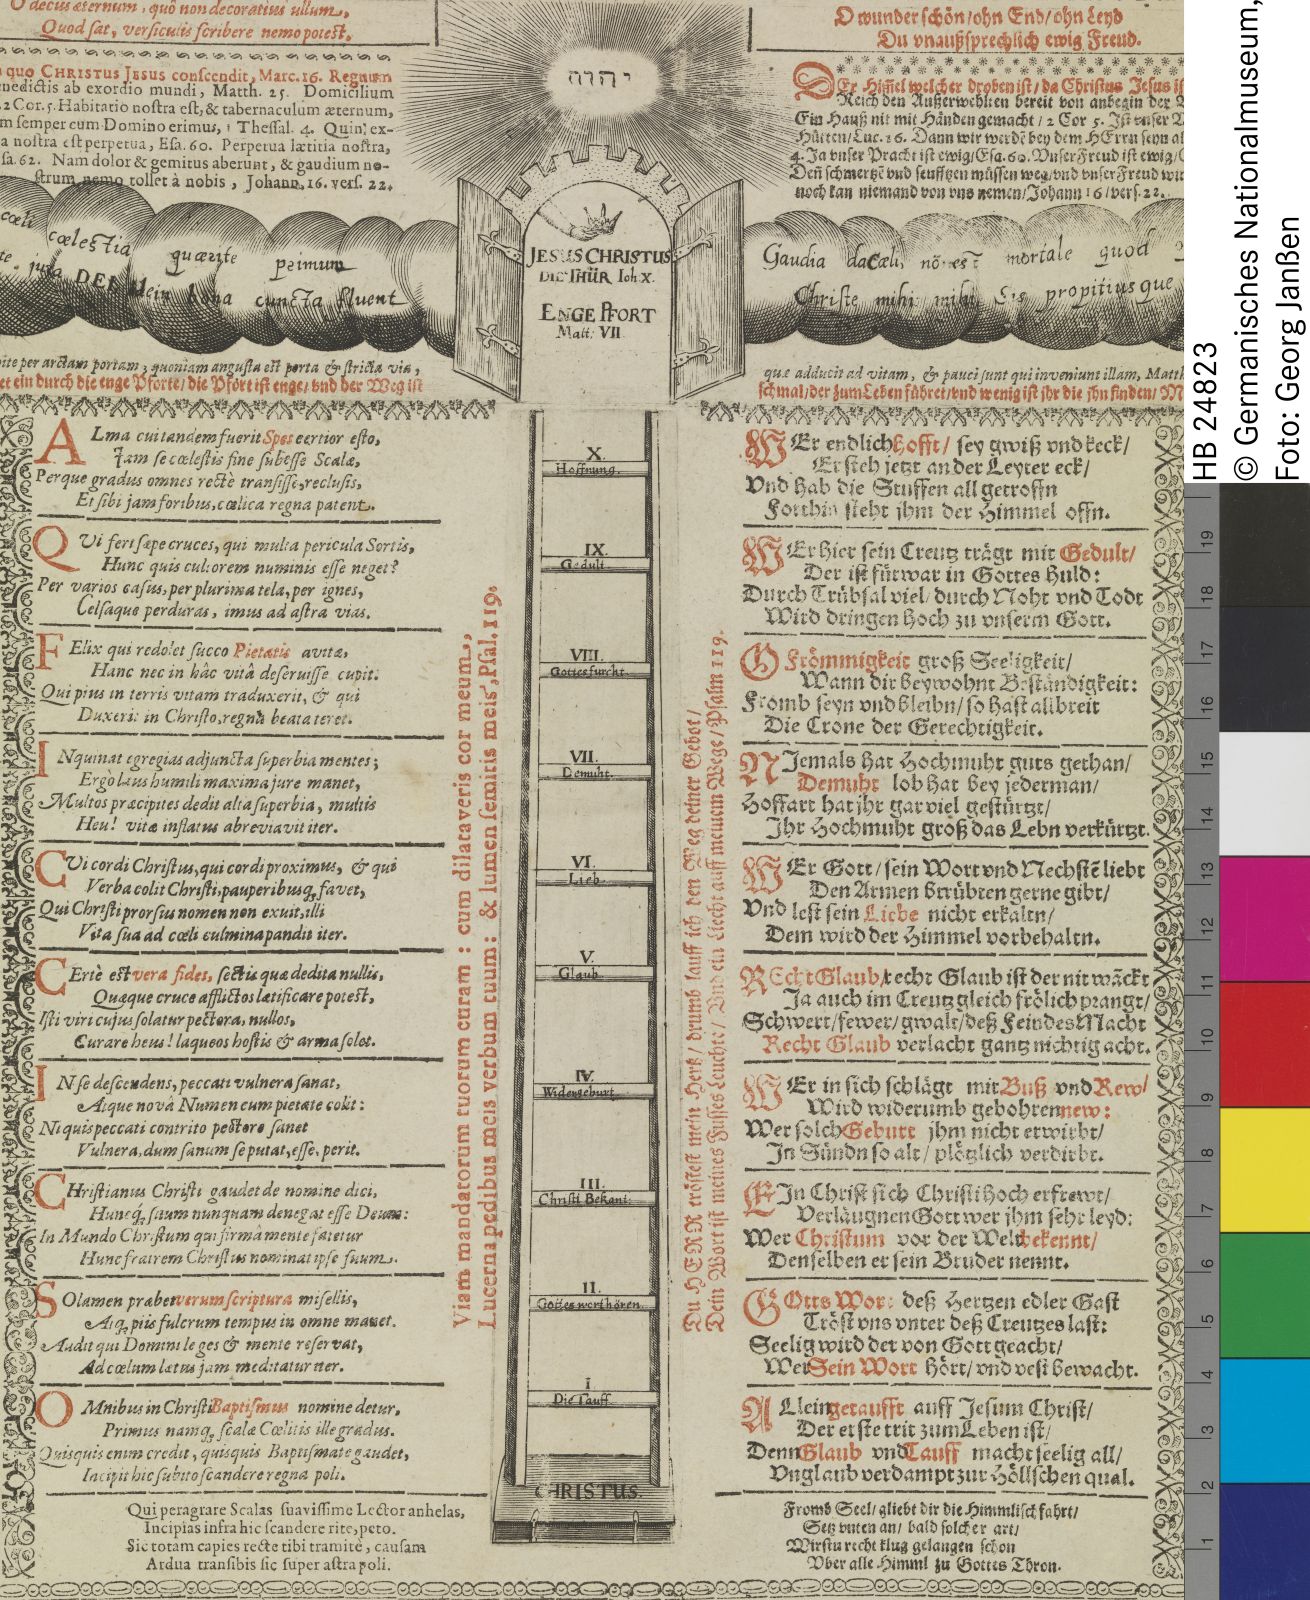 O decus æternum, quô non decoratius ullum,
Quod sat, versiculis scribere nemo potest.
quo CHRISTUS JESUS conscendit, Marc. 16. Regnum
benedictis ab exordio mundi, Matth. 25. Domicilium
2 Cor. 5. Habitatio nostra est, & tabernaculum æternum,
semper cum Domino erimus, 1 Thessal. 4. Quin; ex-
nostra est perpetua, Esa. 60. Perpetua lætitia nostra,
Esa. 62. Nam dolor & gemitus aberunt, & gaudium no-
strum nemo tollet à nobis, Johann. 16. vers. 22.
יהוה
O wunder schön/ohn End/ohn Leyd
Du vnaußsprechlich ewig Freud.
DEr Himel welcher droben ist/da Christus Jesus
Reich den Außerwehlten bereit von anbegin der
Ein Hauß nit mit Händen gemacht/2 Cor 5. Ist vnser
Hütten/Luc. 16. Dann wir werdē bey dem HErrn seyn
4. Ja vnser Pracht ist ewig/Esa. 60. Vnser Freud ist ewig/
Deñ schmertzē vnd seufftzen müssen weg/vnd vnser Freud
noch kan niemand von vns nemen/Johann 16/vers. 22.
cœli
cœlestia quærite primum
DEI bona cuncta fluent
JESUS CHRISTUS
DIE THÜR Ioh. X.
ENGE PFORT
Matt: VII
Gaudia da cœli, nō est mortale quod
Christe mihi mihi sis propitiusque
per arctam portam, quoniam angusta est porta & stricta via,
ein durch die enge Pforte/die Pfort ist enge/vnd der Weg ist
quæ adducit ad vitam, & pauci sunt qui inveniunt illam, Matth
schmal/der zum Leben führet/vnd wenig ist ihr die jhn finden/
ALma cui tandem fuerit Spes certior esto,
Jam se cœlestis fine subesse Scalæ,
Perque gradus omnes rectè transisse, reclusis,
Et sibi jam foribus, cœlica regna patent.
QVi fert sæpe cruces, qui multa pericula Sortis,
Hunc quis cultorem numinis esse neget?
Per varios casus, per plurima tela, per ignes,
Celsaque perduras, imus ad astra vias.
FElix qui redolet succo Pietatis avitæ,
Hanc nec in hâc vitâ deseruisse cupit:
Qui pius in terris vitam traduxerit, & qui
Duxerit in Christo, regna beata teret.
INquinat egregias adjuncta superbia mentes;
Ergo laus humili maxima jure manet,
Multos præcipites dedit alta superbia, multis
Heu! vitæ inflatus abreviavit iter.
CVi cordi Christus, qui cordi proximus, & qui
Verba colit Christi, pauperibusq; favet,
Qui Christi prorsus nomen non exuit, illi
Vita sua ad cœli culmina pandit iter.
CErtè est vera fides, sectis quæ dedita nullis,
Quæque cruce afflictos lætificare potest,
Isti viri cujus solatur pectora, nullos,
Curare heus! laqueos hostis & arma solet.
IN se descendens, peccati vulnera sanat,
Atque novâ Numen cum pietate colit:
Ni quis peccati contrito pectore sanet
Vulnera, dum sanum se putat, esse, perit.
CHristianus Christi gaudet de nomine dici,
Huncq; suum nunquam denegat esse Deum:
In Mundo Christum qui firmâ mente fatetur
Hunc fratrem Christus nominat ipse suum.
SOlamen præbet verum scriptura misellis,
Atq; piis fulcrum tempus in omne manet.
Audit qui Domini leges & mente reservat,
Ad cœlum latus jam meditatur iter.
OMnibus in Christi Baptismus nomine detur,
Primus namq; scalæ Cœlitis ille gradus.
Quisquis enim credit, quisquis Baptismate gaudet,
Incipit hic subito scandere regna poli.
Qui peragrare Scalas suavissime Lector anhelas,
Incipias infra hic scandere rite, peto.
Sic totam capies recte tibi tramitē, causam
Ardua transibis sic super astra poli.
Viam mandatorum tuorum curam: cum dilataveris cor meum,
Lucerna pedibus meis verbum tuum: & lumen semitis meis, Psal. 119.
X.
Hoffnung.
IX.
Gedult.
VIII.
Gottesfurcht.
VII.
Demuht.
VI.
Lieb.
V.
Glaub.
IV.
Widergeburt.
III.
Christi Bekant:
II.
Gottes wort hören.
I
Die Tauff.
CHRISTUS.
Du HERR tröstest mein Hertz/drumb lauff ich den Weg deiner Gebot/
Dein Wort ist meines Fusses Leuchte/Vnd ein Liecht auff meinem Wege/Psalm 119.
WEr endlich hofft/ sey gwiß vnd keck/
Er steh jetzt an der Leyter eck/
Vnd hab die Stuffen all getroffn
Forthin steht jhm der Himmel offn.
WEr hier sein Creutz trägt mit Gedult/
Der ist fürwar in Gottes Huld:
Durch Trübsal viel/durch Noht vnd Todt
Wird dringen hoch zu vnserm Gott.
O Frömmigkeit groß Seeligkeit/
Wann dir beywohnt Beständigkeit:
Fromb seyn vnd bleibn/so hast allbreit
Die Crone der Gerechtigkeit.
NJemals hat Hochmuht guts gethan/
Demuht lob hat bey jederman/
Hoffart hat jhr gar viel gestürtzt/
Jhr Hochmuht groß das Lebn verkürtzt.
WEr Gott/sein Wort vnd Nechstē liebt
Den Armen btrübten gerne gibt/
Vnd lest sein Liebe nicht erkaltn/
Dem wird der Himmel vorbehaltn.
REcht Glaub/recht Glaub ist der nit wäckt
Ja auch im Creutz gleich frölich prangt/
Schwert/fewer/gwalt/deß Feindes Macht
Recht Glaub verlacht gantz nichtig acht.
WEr in sich schlägt mit Buß vnd Rew/
Wird widerumb gebohren new:
Wer solch Geburt jhm nicht erwirbt/
In Sündn so alt/plötzlich verdirbt.
EIn Christ sich Christi hoch erfrewt/
Verläugnen Gott wer jhm sehr leyd:
Wer Christum vor der Welt bekennt/
Denselben er sein Bruder nennt.
GOtts Wort deß Hertzen edler Gast
Tröst vns vnter deß Creutzes last:
Seelig wird der von Gott geacht/
Wer Sein Wort hört/vnd vest bewacht.
ALlein getaufft auff Jesum Christ/
Der erste trit zum Leben ist/
Denn Glaub vnd Tauff macht seelig all/
Vnglaub verdampt zur Höllschen qual.
Fromb Seel/gliebt dir die Himmlisch fahrt/
Setz vnten an/bald solcher art/
Wirstu recht klug gelangen schon
Vber alle Himml zu Gottes Thron.
HB 24823
© Germanisches Nationalmuseum,
Foto: Georg Janßen
19
18
17
16
15
14
13
12
11
10
9
8
7
6
5
4
3
2
1